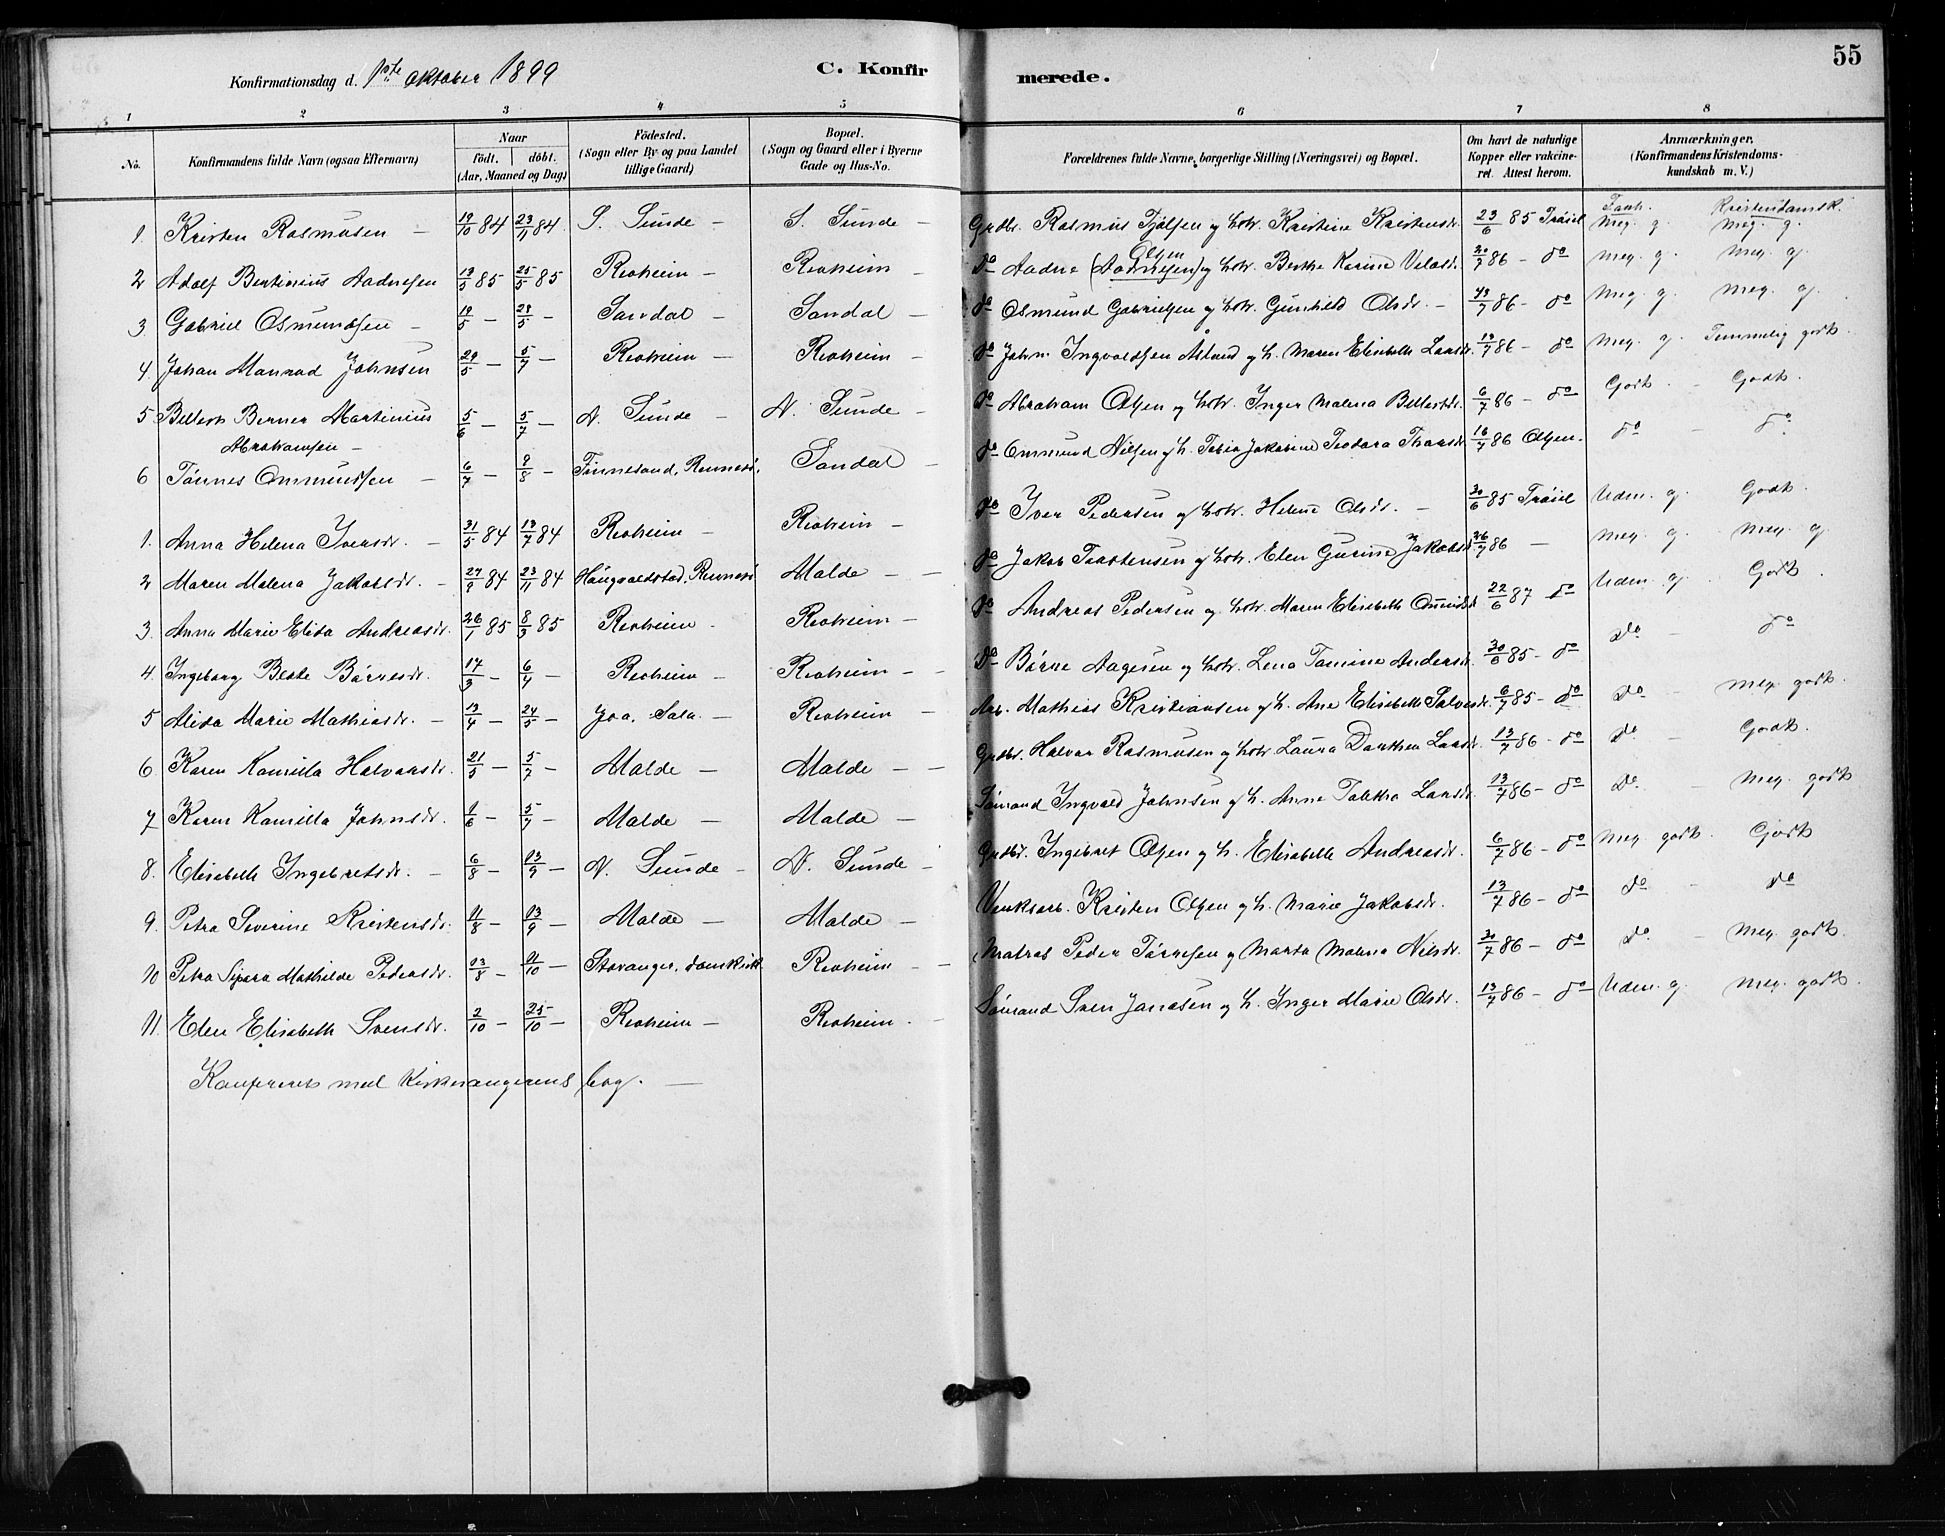 55
Konfirmationsdag d. 1ste Oktober 1899 C. Konfirmerede.
1 2 3 4 5 6 7 8
No. Konfirmandens fulde Navn (ogsaa Efternavn) Naar födt. döbt. (Aar, Maaned og Dag) Födested. (Sogn eller By og paa Landet tillige Gaard) Bopæl. (Sogn og Gaard eller i Byerne Gade og Hus-No. Forældrenes fulde Navne, borgerlige Stilling (Næringsvei) og Bopæl. Om havt de naturlige Kopper eller vakcineret. Attest herom. Anmærkninger. (Konfirmandens Kristendomskundskab m. V.)
Kristendomsk.
1. Kristen Rasmusen – 19/10 84 23/11 84. S. Sunde – S. Sunde – Grdbr. Rasmus Tjølsen og hstr. Kristine Kristensdr. 23/6 85 Trósel Meg. g. Meg. g.
2 Adolf Bertinius Aadnesen 13/5 85 25/5 85 Revheim – Revheim – do Aadne (Aadnesen) Olsen og hstr. Berthe Karine Velasdr. 20/7 86 – do Meg. g. Meg. g.
3 Gabriel Osmundsen – 19/5 – 28/5 – Sandal – Sandal – do Osmund Gabrielsen og hstr. Gunhild Olsdr. – 13/7 86 – do Meg. g. Meg. g.
4. Johan Manrad Johnsen 29/5 – 5/7 – Revheim – Revheim – do John Ingvaldsen Åsland og h. Maren Elisabeth Larsdr. 13/7 86 – do Meg. g. Temmelig godt.
5 Bellest Berner Martinius Abrahamsen – 5/6 – 5/7 – N. Sunde – N. Sunde – do Abraham Olsen og hstr. Inger Malena Bellestdr. 6/7 86 – do Godt – Godt.
6 Tønnes Ommundsen – 6/7 – 9/8 – Finnesand, Rennesø. Sandal – do Ommund Nilsen og h. Tobia Jakobine Teodora Thorsdr. 16/7 86 Olsen. do – do
1. Anna Helena Iversdr. – 31/5 84 13/7 84 Revheim – Revheim – do Iver Pedersen og hstr. Helene Olsdr. – 30/6 85 Trósel Udm. g. Godt.
2 Maren Malena Jakobsdr. – 27/9 84 23/11 84 Haugvaldstad, Rennesø Malde – do Jakob Taastensen og hstr. Elen Gurine Jakobsd. 26/7 86 – Meg. g. Meg. g.
3. Anna Marie Elisa Andreasdr. 26/1 85 8/3 85 Revheim – Revheim – do Andreas Pedersen og hstr. Maren Elisabeth Omundsd. 22/6 87 do Udm. g. Godt.
4. Ingeborg Beate Børresdr. 17/3 – 6/4 – Revheim – Revheim – do Børre Aagesen og hstr. Lena Tomine Andersdr. 30/6 85 – do do – do
5 Alida Marie Mathiasdr. – 13/4 – 24/5 – Joa, Sola – Revheim – Arb. Mathias Kristiansen og h. Ane Elisabeth Salvesdr. 6/7 85 – do do – Meg. godt.
6. Karen Kamilla Halvorsdr. 21/5 – 5/7 – Malde – Malde – Grdbr. Halvor Rasmusen og hstr. Laura Dorthea Larsdr. 13/7 86 – do do – Godt.
7 Karen Kamilla Johnsdr. 1/6 – 5/7 – Malde – Malde – Sømand Ingvald Johnsen og h. Anne Tabitha Larsdr. 13/7 86 – do do – Meg. godt
8. Elisabeth Ingebretsdr. – 6/8 – 13/9 – N. Sunde – N. Sunde – Grdbr. Ingebret Olsen og h. Elisabeth Andreasdr. 6/7 86 – do Meg. godt. Godt
9. Petra Severine Kristensdr. 11/8 – 13/9 – Malde – Malde – Kristen Olsen og h. Marie Jakobsdr. 13/7 86 – do do – do
10 Petra Sigvara Mathilde Pedersdr. 13/8 – 11/10 – Stavanger, domkirk. Revheim – Matros Peder Tørresen og Marta Malena Nilsdr. 30/7 86 – do do – Meg. godt.
11. Elen Elisabeth Svensdr. 2/10 – 25/10 – Revheim – Revheim – Sømand Sven Jonasen og h. Inger Marie Olsdr. 13/7 86 – do Udm. g. Meg. godt.
Konfereret med Kirkesangerens bog. –